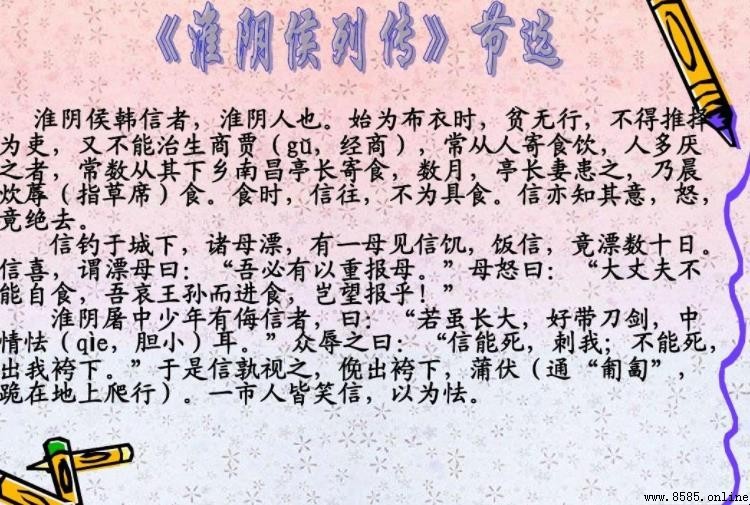 《淮阴侯列传》节选
淮阴侯韩信者，淮阴人也。始为布衣时，贫无行，不得推择
为吏，又不能治生商贾（gǔ，经商），常从人寄食饮，人多厌
之者，常数从其下乡南昌亭长寄食，数月，亭长妻患之，乃晨
炊蓐（指草席）食。食时，信往，不为具食。信亦知其意，怒，
竟绝去。
信钓于城下，诸母漂，有一母见信饥，饭信，竟漂数十日。
信喜，谓漂母曰：“吾必有以重报母。”母怒曰：“大丈夫不
能自食，吾哀王孙而进食，岂望报乎！”
淮阴屠中少年有侮信者，曰：“若虽长大，好带刀剑，中
情怯（qìe，胆小）耳。”众辱之曰：“信能死，刺我；不能死，
出我袴下。”于是信孰视之，俛出袴下，蒲伏（通“匍匐”，
跪在地上爬行）。一市人皆笑信，以为怯。
www.8585.online